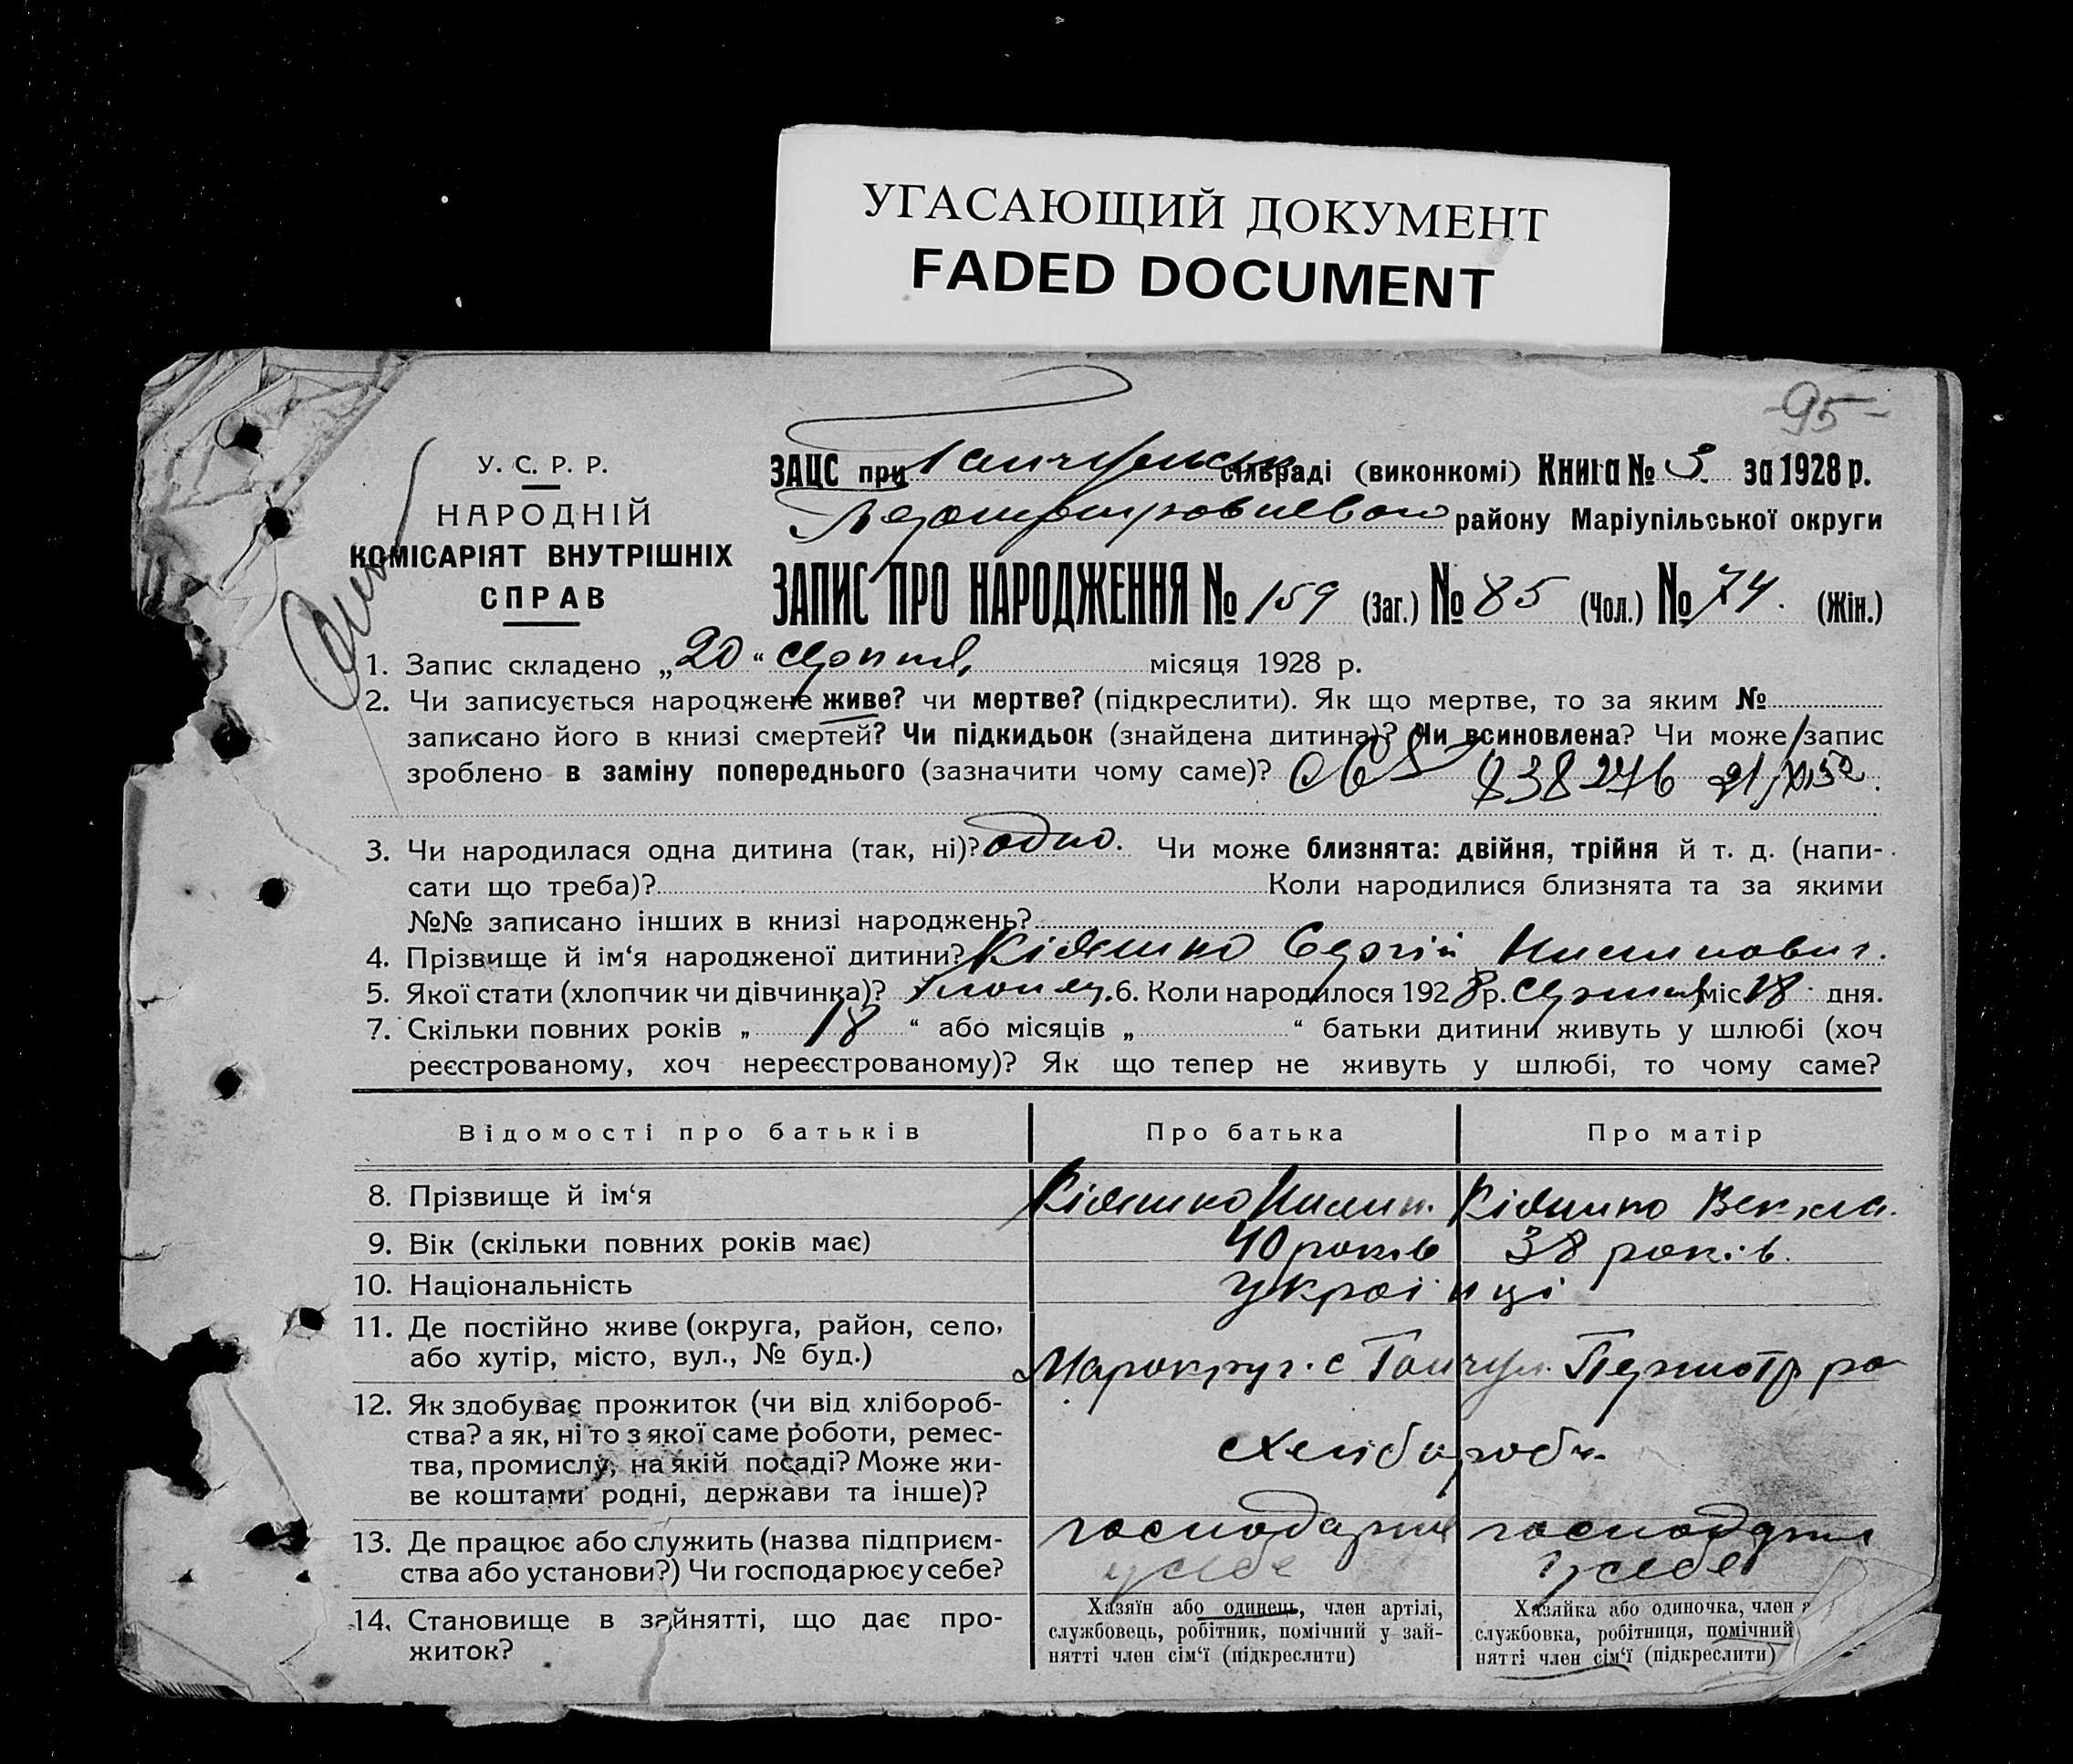 УГАСАЮЩИЙ ДОКУМЕНТ
FADED DOCUMENT
-95-
У. С. Р. Р.
НАРОДНІЙ
КОМІСАРІЯТ ВНУТРІШНІХ
СПРАВ
ЗАЦС при сільраді (виконкомі) Книга № 3. за 1928 р.
району Маріупільської округи
ЗАПИС ПРО НАРОДЖЕННЯ № 159 (Заг.) № 85 (Чол.) № 74. (Жін.)
1. Запис складено „20“ серпня, місяця 1928 р.
2. Чи записується народжене живе? чи мертве? (підкреслити). Як що мертве, то за яким №
записано його в книзі смертей? Чи підкидьок (знайдена дитина)? Чи всиновлена? Чи може запис
зроблено в заміну попереднього (зазначити чому саме)? 838276
3. Чи народилася одна дитина (так, ні)? одно. Чи може близнята: двійня, трійня й т. д. (напи-
сати що треба)? Коли народилися близнята та за якими
№№ записано інших в книзі народжень?
4. Прізвище й ім‘я народженої дитини? Кіяшко Сергій
5. Якої стати (хлопчик чи дівчинка)? Хлопец. 6. Коли народилося 1928 р. серпня міс. 18 дня.
7. Скільки повних років „ 18 “ або місяців „ “ батьки дитини живуть у шлюбі (хоч
реєстрованому, хоч нереєстрованому)? Як що тепер не живуть у шлюбі, то чому саме?
Відомості про батьків Про батька Про матір
8. Прізвище й ім‘я Кіяшко Кіяшко Векла.
9. Вік (скільки повних років має) 40 років 38 років.
10. Національність українці
11. Де постійно живе (округа, район, село,
або хутір, місто, вул., № буд.) Марокруг. с Гайчул.
12. Як здобуває прожиток (чи від хлібороб-
ства? а як, ні то з якої саме роботи, ремес-
тва, промислу, на якій посаді? Може жи-
ве коштами родні, держави та інше)?
13. Де працює або служить (назва підприєм-
ства або установи?) Чи господарює у себе?
господарює у себе
господарює у себе
14. Становище в зайнятті, що дає про-
житок?
Хазяїн або одинець, член артілі,
службовець, робітник, помічний у зай-
нятті член сім‘ї (підкреслити)
Хазяйка або одиночка, член
службовка, робітниця, помічний
нятті член сім‘ї (підкреслити)